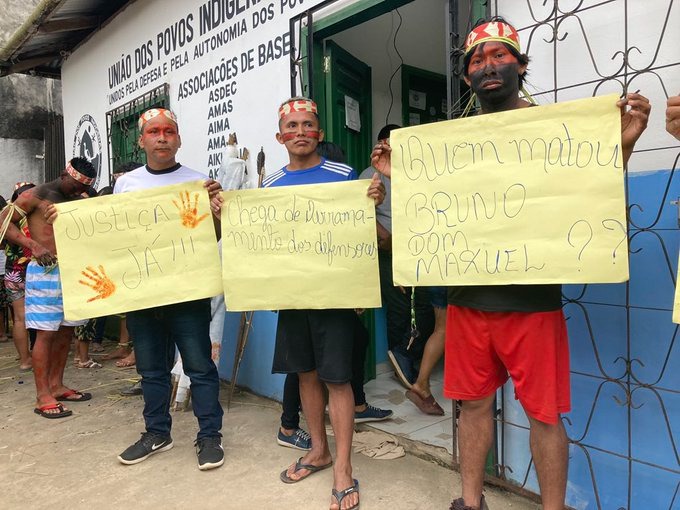 UNIÃO DOS POVOS INDÍGEN
UNIDOS PELA DEFESA E PELA AUTONOMIA DOS POV
ASSOCIAÇÕES DE BASE
ASDEC
AMAS
AIMA
AMA
AIKU
JUSTIÇA
JÁ!!!
Chega de
mento dos defensores
Quem matou
BRUNO
DOM
MAXUEL ??